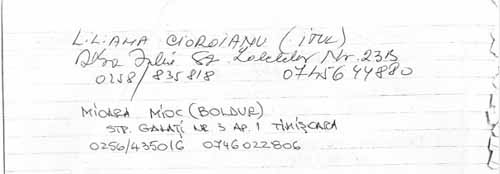 LILIANA CIOROIANU (ITUL)
Alba Iulia Str Zorelelor Nr. 23B
0258/835818 0745644880
MIOARA MIOC (BOLDUR)
STR. GALAȚI NR. 3 AP. 1 TIMIȘOARA
0256/435016 0746022806